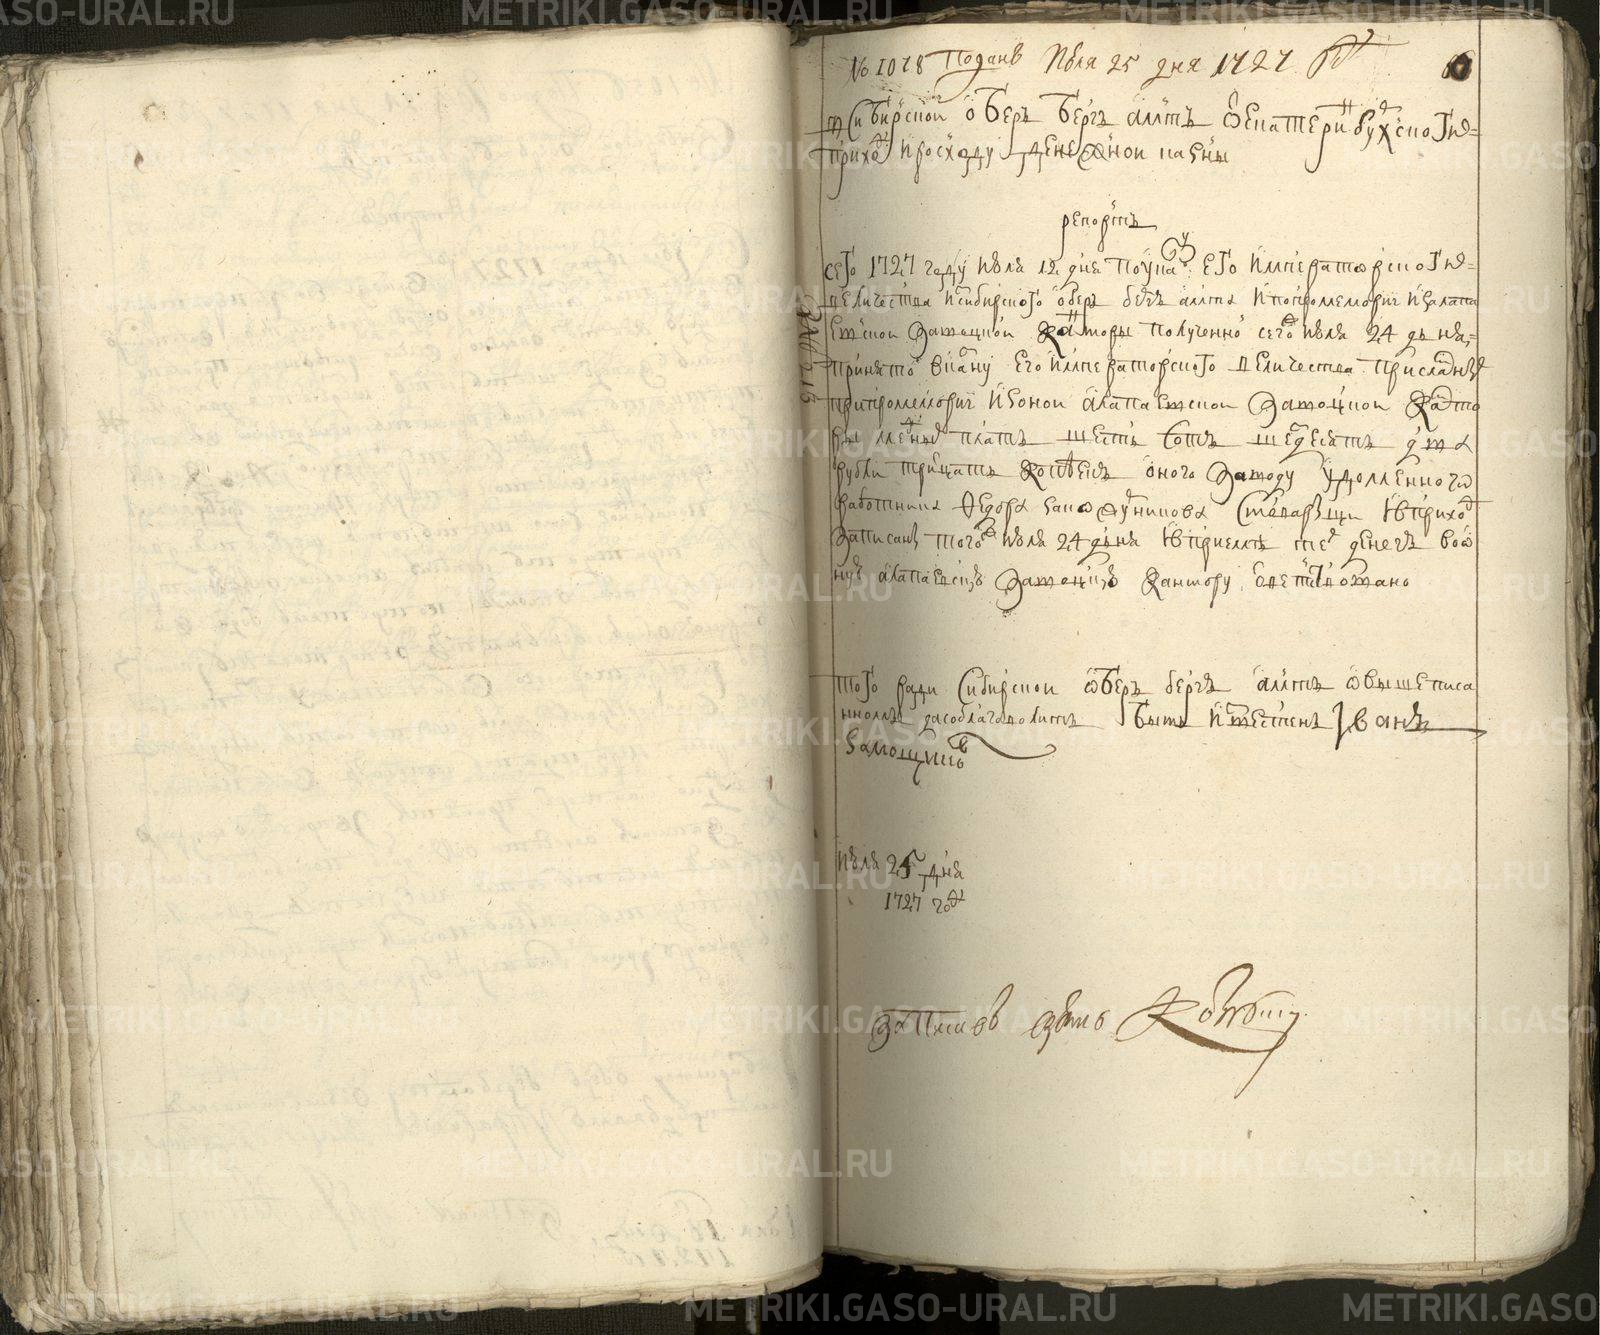 № 1078 Подан июля 25 дня 1727
в Сибирской обер берг амт от екатерибухского
приходу и росходу денежной казны
репорт
сего 1727 году июля 12 дня по указу его императорского
величества ис сибирского обер берг амта и при промемории из алапа
евской заводской канторы полученно сего июля 24 дня
принято в казну его императорского величества присланных
при промемории из оной алапаевской заводской канто
ры медных плат шесть сот шездесят два
рубли трицать копеек оного заводу
работника Федора с товарыщи и в приход
записаны того июля 24 дня и в приеме тех денег во о
ную алапаевскую заводскую кантору ответствовано
того ради Сибирской обер берг амт о вышеписа
нном да соблаговолит быть известен Иван
Замощиков
июля 25 дня
1727 год
записав
METRIKI.GASO-URAL.RU